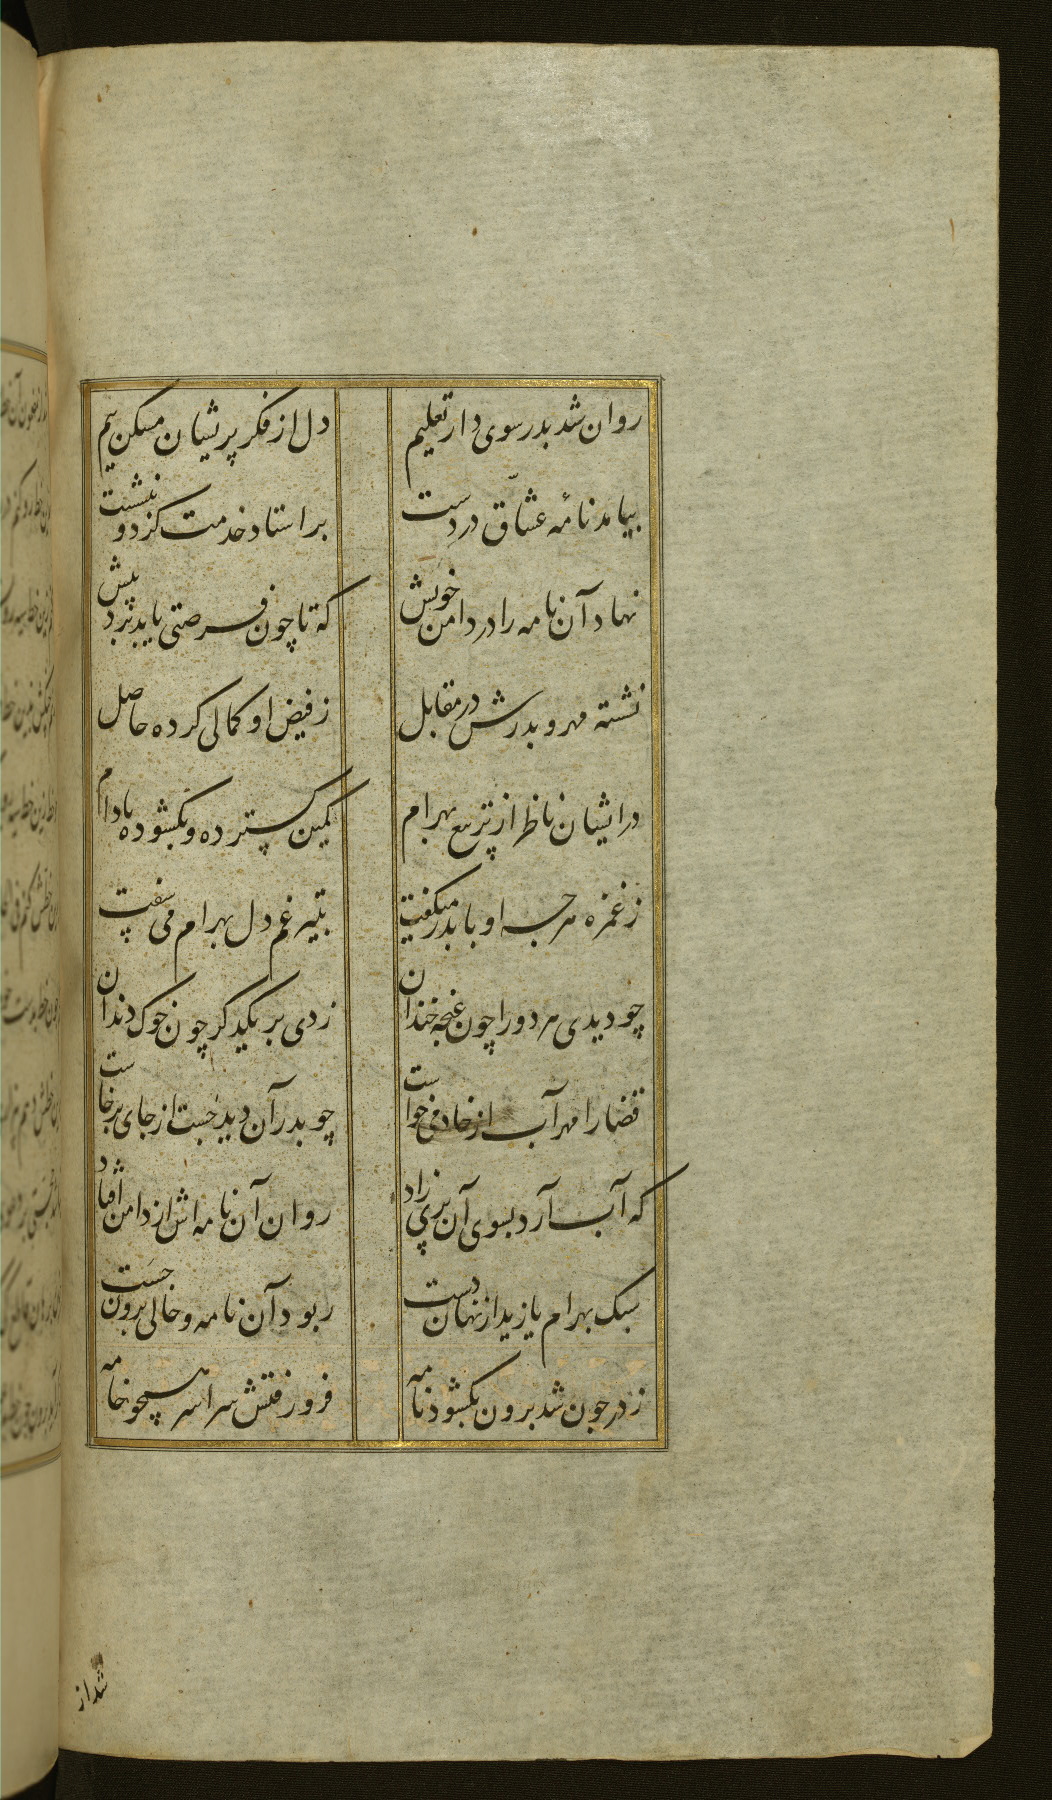 روان شد بدر سوی دار تعلیم دل از فکر پریشان مسکن بیم
بیامد نامهٔ عشاق در دست بر استاد خدمت کرد و بنشست
نهاد آن نامه را در دامن خویش که تا چون فرصتی یابد برد پیش
نشسته مهر و بدرش در مقابل ز فیض او کمالی کرده حاصل
در ایشان ناظر از تربیع بهرام کمین گسترده و بگشوده بادام
ز غمزه هرچه او با بدر میگفت بتیر غم دل بهرام می سفت
چو دیدی هر دو را چون غنچه خندان زدی بر یکدگر چون خوک دندان
قضا را مهر آب از خادمی خواست چو بدر آن دید جست از جای برخاست
که آب آرد بسوی آن پری زاد روان آن نامه اش از دامن افتاد
سبک بهرام یازید از نهان دست ربود آن نامه و حالی برون جست
ز در چون شد برون بگشود نامه فرو رفتش سراسر همچو خامه
شد از